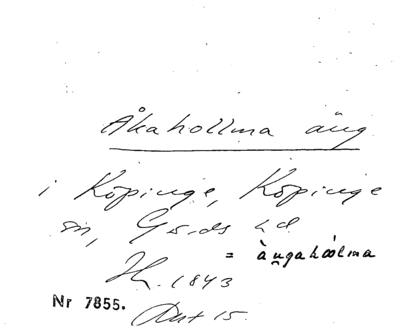 Åkahollma äng
i Köpinge, Köpinge
sn, Gärds hd
= àngahòolma
1843
Nr 7855.
Akt 15.